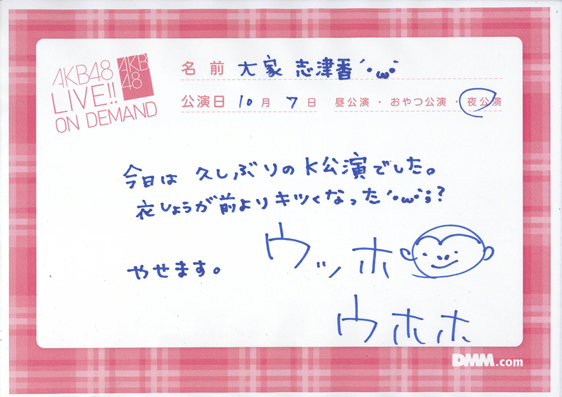 AKB48
LIVE!!
ON DEMAND
AKB
48
名前 大家 志津香 ´・ω・`
公演日 10月 7日 昼公演・おやつ公演・夜公演
今日は 久しぶりのK公演でした。
衣しょうが前よりキツくなった´・ω・`;?
ウッホ
やせます。
ウホホ
DMM.com